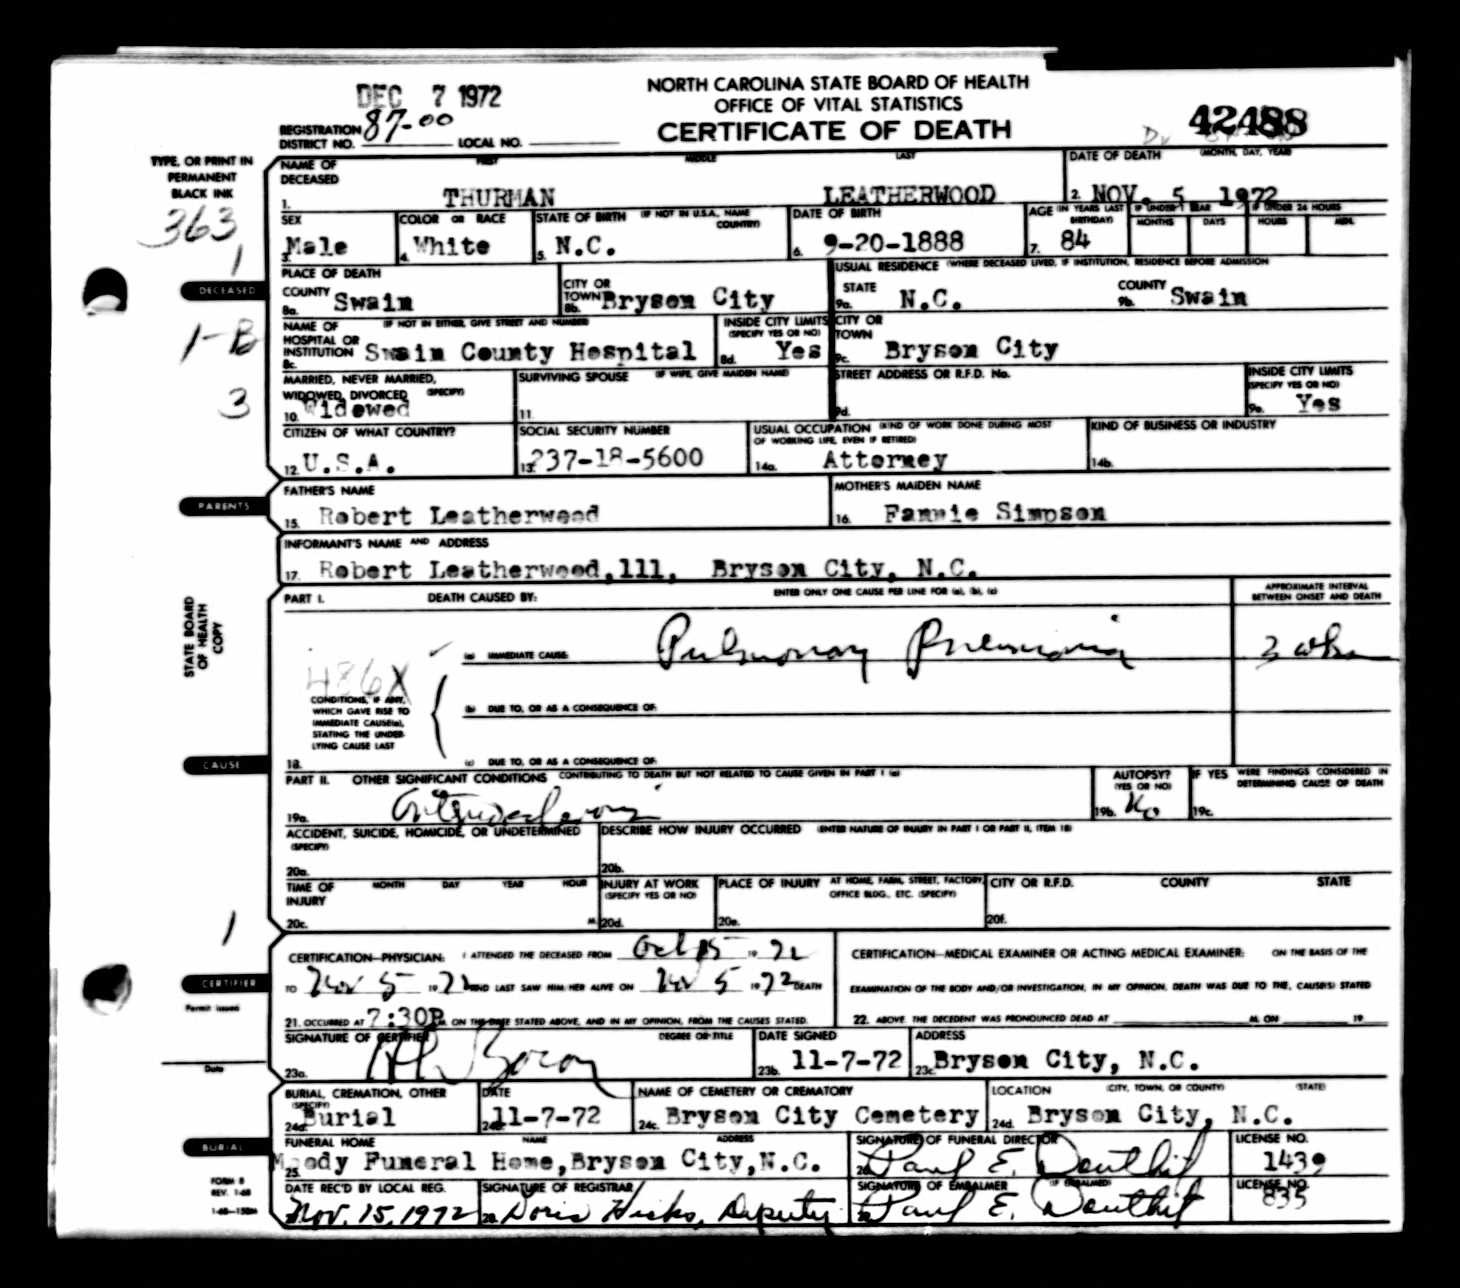 DEC 7 1972
NORTH CAROLINA STATE BOARD OF HEALTH
OFFICE OF VITAL STATISTICS
CERTIFICATE OF DEATH
42488
REGISTRATION DISTRICT NO. 87-00 LOCAL NO.
TYPE, OR PRINT IN
PERMANENT
BLACK INK
363
1
DECEASED
1-B
3
NAME OF DECEASED FIRST MIDDLE LAST
1. THURMAN LEATHERWOOD
DATE OF DEATH (MONTH, DAY, YEAR)
2. NOV. 5 1972
SEX
3. Male
COLOR OR RACE
4. White
STATE OF BIRTH (IF NOT IN U.S.A., NAME COUNTRY)
5. N.C.
DATE OF BIRTH
6. 9-20-1888
AGE (IN YEARS LAST BIRTHDAY)
7. 84
IF UNDER 1 YEAR
MONTHS DAYS
IF UNDER 24 HOURS
HOURS MIN.
PLACE OF DEATH
COUNTY
8a. Swain
CITY OR TOWN
8b. Bryson City
USUAL RESIDENCE (WHERE DECEASED LIVED, IF INSTITUTION, RESIDENCE BEFORE ADMISSION
STATE
9a. N.C.
COUNTY
9b. Swain
NAME OF HOSPITAL OR INSTITUTION (IF NOT IN EITHER, GIVE STREET AND NUMBER)
8c. Swain County Hospital
INSIDE CITY LIMITS (SPECIFY YES OR NO)
8d. Yes
CITY OR TOWN
9c. Bryson City
MARRIED, NEVER MARRIED, WIDOWED, DIVORCED (SPECIFY)
10. Widowed
SURVIVING SPOUSE (IF WIFE, GIVE MAIDEN NAME)
11.
STREET ADDRESS OR R.F.D. No.
9d.
INSIDE CITY LIMITS (SPECIFY YES OR NO)
9e. Yes
CITIZEN OF WHAT COUNTRY?
12. U.S.A.
SOCIAL SECURITY NUMBER
13. 237-18-5600
USUAL OCCUPATION (KIND OF WORK DONE DURING MOST OF WORKING LIFE, EVEN IF RETIRED)
14a. Attorney
KIND OF BUSINESS OR INDUSTRY
14b.
PARENTS
FATHER'S NAME
15. Robert Leatherwood
MOTHER'S MAIDEN NAME
16. Fannie Simpson
INFORMANT'S NAME AND ADDRESS
17. Robert Leatherwood, 111, Bryson City, N.C.
STATE BOARD
OF HEALTH
COPY
CAUSE
PART I. DEATH CAUSED BY: ENTER ONLY ONE CAUSE PER LINE FOR (a), (b), (c)
APPROXIMATE INTERVAL BETWEEN ONSET AND DEATH
(a) IMMEDIATE CAUSE: Pulmonary Pneumonia 3 wks
486X
CONDITIONS, IF ANY,
WHICH GAVE RISE TO
IMMEDIATE CAUSE(a),
STATING THE UNDER-
LYING CAUSE LAST
(b) DUE TO, OR AS A CONSEQUENCE OF:
18. (c) DUE TO, OR AS A CONSEQUENCE OF:
PART II. OTHER SIGNIFICANT CONDITIONS CONTRIBUTING TO DEATH BUT NOT RELATED TO CAUSE GIVEN IN PART I (a)
19a.
AUTOPSY? (YES OR NO)
19b. No
IF YES WERE FINDINGS CONSIDERED IN DETERMINING CAUSE OF DEATH
19c.
ACCIDENT, SUICIDE, HOMICIDE, OR UNDETERMINED (SPECIFY)
20a.
DESCRIBE HOW INJURY OCCURRED (ENTER NATURE OF INJURY IN PART I OR PART II, ITEM 18)
20b.
TIME OF INJURY MONTH DAY YEAR HOUR
20c. M.
INJURY AT WORK (SPECIFY YES OR NO)
20d.
PLACE OF INJURY AT HOME, FARM, STREET, FACTORY, OFFICE BLDG., ETC. (SPECIFY)
20e.
CITY OR R.F.D. COUNTY STATE
20f.
1
CERTIFIER
Permit Issued
Date
CERTIFICATION—PHYSICIAN: I ATTENDED THE DECEASED FROM Oct 15 1972
TO Nov 5 1972 AND LAST SAW HIM/HER ALIVE ON Nov 5 1972 DEATH
21. OCCURRED AT 7:30P M. ON THE DATE STATED ABOVE, AND IN MY OPINION, FROM THE CAUSES STATED.
CERTIFICATION—MEDICAL EXAMINER OR ACTING MEDICAL EXAMINER: ON THE BASIS OF THE
EXAMINATION OF THE BODY AND/OR INVESTIGATION, IN MY OPINION, DEATH WAS DUE TO THE, CAUSE(S) STATED
22. ABOVE. THE DECEDENT WAS PRONOUNCED DEAD AT M. ON 19
SIGNATURE OF CERTIFIER DEGREE OR TITLE
23a.
DATE SIGNED
23b. 11-7-72
ADDRESS
23c. Bryson City, N.C.
BURIAL
BURIAL, CREMATION, OTHER (SPECIFY)
24a. Burial
DATE
24b. 11-7-72
NAME OF CEMETERY OR CREMATORY
24c. Bryson City Cemetery
LOCATION (CITY, TOWN, OR COUNTY) (STATE)
24d. Bryson City, N.C.
FUNERAL HOME NAME ADDRESS
25. Moody Funeral Home, Bryson City, N.C.
SIGNATURE OF FUNERAL DIRECTOR
26. Paul E. Douthit
LICENSE NO.
1439
FORM 8
REV. 1-68
1-68—150M
DATE REC'D BY LOCAL REG.
Nov. 15, 1972
SIGNATURE OF REGISTRAR
28. Doris Hicks, Deputy
SIGNATURE OF EMBALMER (IF EMBALMED)
Paul E. Douthit
LICENSE NO.
835